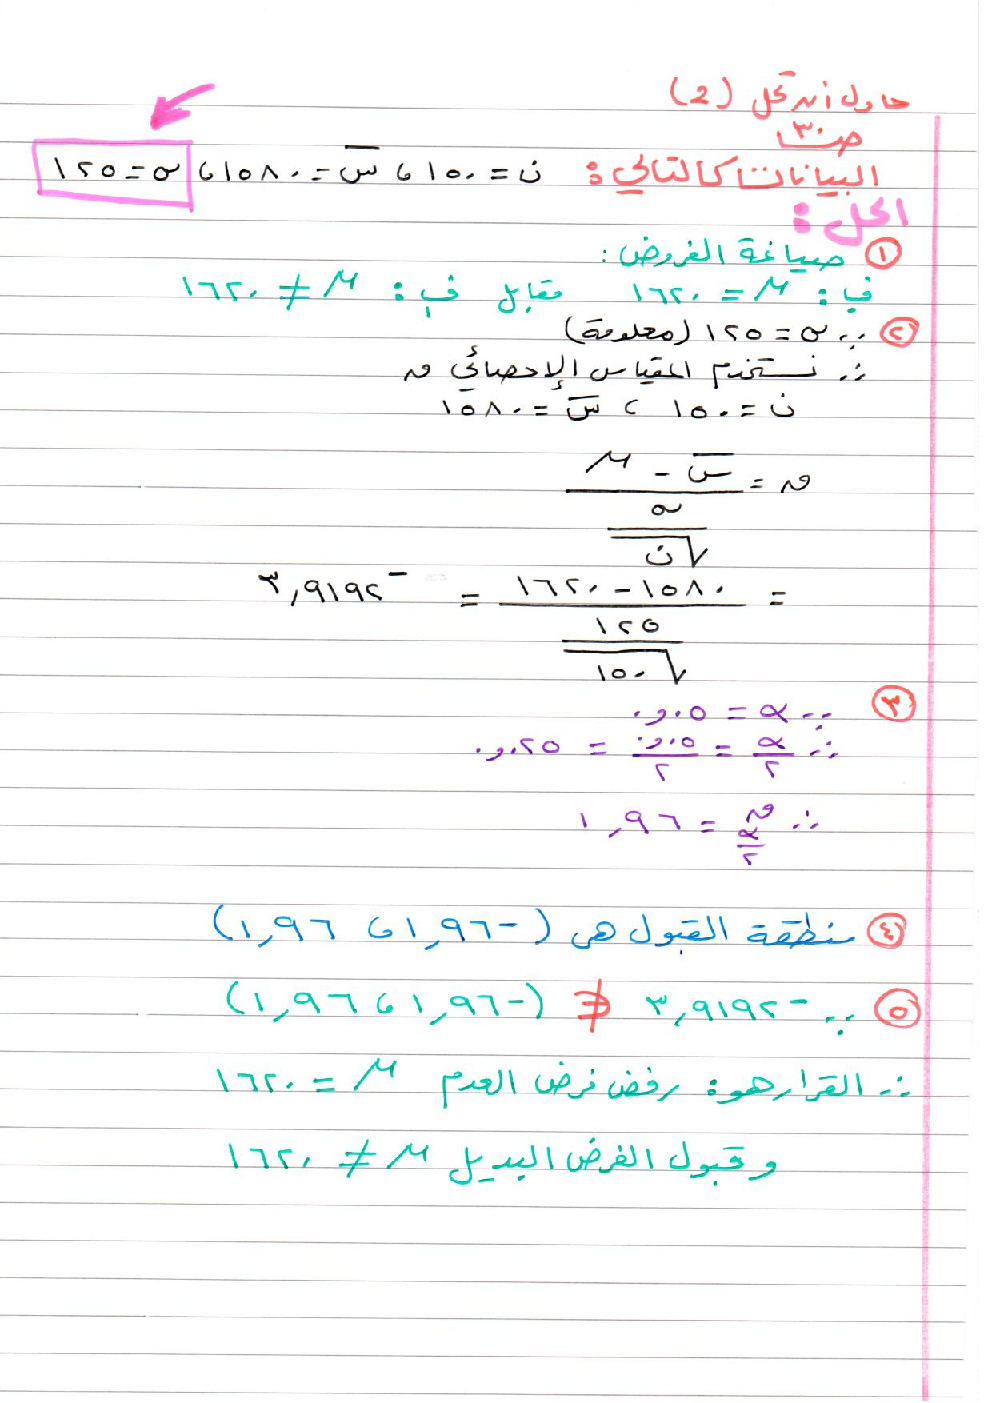 حاول أن تحل (2)
ص ٣٠
البيانات كالتالي: ن = ١٥٠ ، س̄ = ١٥٨٠ ، σ = ١٢٥
الحل:
① صياغة الفروض:
ف.: μ = ١٦٢٠ مقابل ف١: μ ≠ ١٦٢٠
② ∵ σ = ١٢٥ (معلومة)
∴ نستخدم المقياس الإحصائي ق
ن = ١٥٠ ، س̄ = ١٥٨٠
ق = (س̄ - μ) / (σ / √ن)
= (١٥٨٠ - ١٦٢٠) / (١٢٥ / √١٥٠) = -٣,٩١٩٢
③ ∵ α = ٠,٠٥
∴ α/٢ = ٠,٠٥/٢ = ٠,٠٢٥
∴ ق α/٢ = ١,٩٦
④ منطقة القبول هي (-١,٩٦ ، ١,٩٦)
⑤ ∵ -٣,٩١٩٢ ∉ (-١,٩٦ ، ١,٩٦)
∴ القرار هو: رفض فرض العدم μ = ١٦٢٠
وقبول الفرض البديل μ ≠ ١٦٢٠